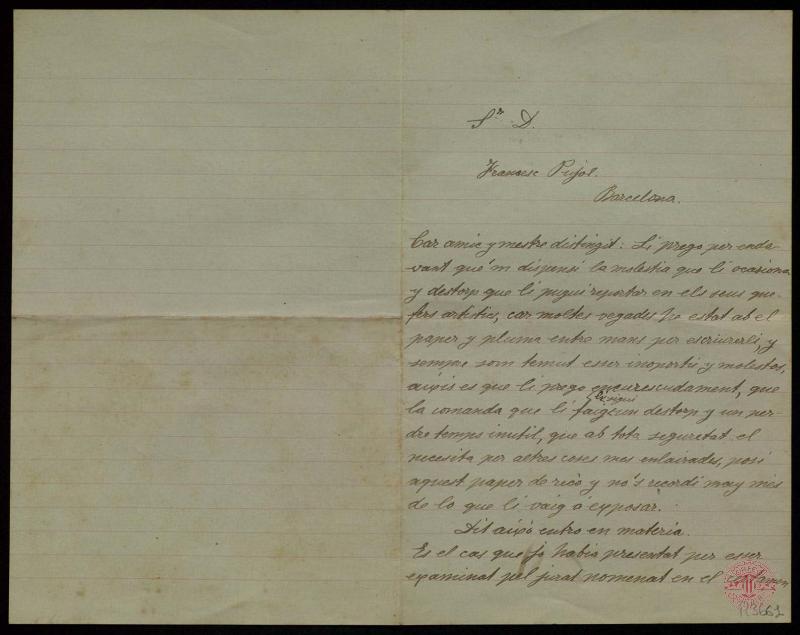 Sr. D.
Francesc Pujol.
Barcelona.
Car amic y mestre distingit: Li prego per enda-
vant que'm dispensi la molestia que li ocasiona
y destorp que li pugui reportar en els seus que-
fers artistics, car moltes vegades he estat ab el
paper y pluma entre mans per escriurerli, y
sempre som temut esser inoportú y molestos,
aixís es que li prego encaresudament, que
li sigui
la comanda que li faig un destorp y un per-
dre temps inutil, que ab tota seguretat el
necesita per altres coses mes enlairades, posi
aquest paper de recó y no's recordi may més
de lo que li vaig á exposar.
Dit aixó entro en materia.
Es el cas que jo habia presentat per esser
examinat pel jurat nomenat en el certamen,
M3661